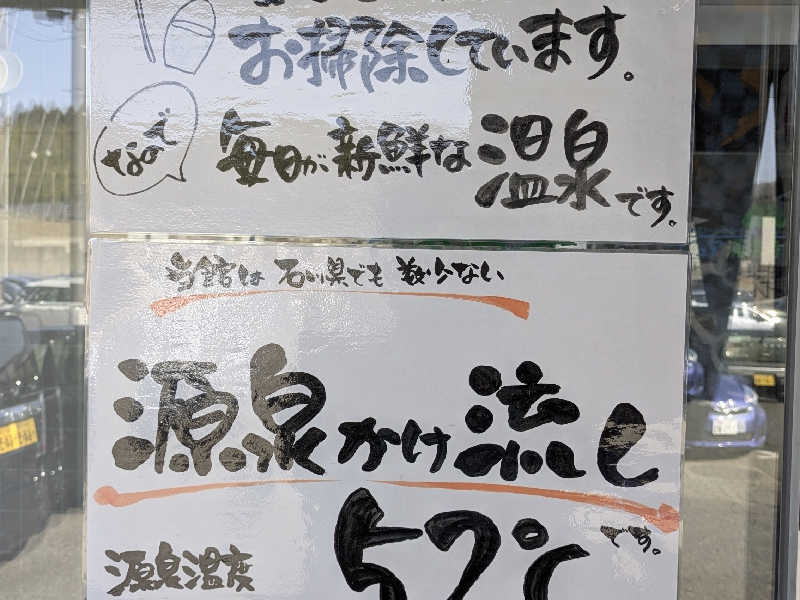 お掃除しています。
なので
毎日が新鮮な温泉です。
当館は石川県でも数少ない
源泉かけ流し
です。
源泉温度 52℃